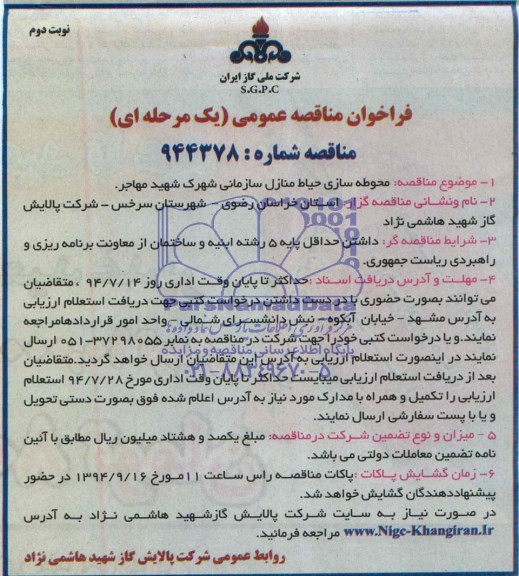 نوبت دوم
شرکت ملی گاز ایران
S.G.P.C
فراخوان مناقصه عمومی (یک مرحله ای)
مناقصه شماره : ۹۴۴۳۷۸
۱- موضوع مناقصه: محوطه سازی حیاط منازل سازمانی شهرک شهید مهاجر.
۲- نام ونشانی مناقصه گزار: استان خراسان رضوی - شهرستان سرخس - شرکت پالایش
گاز شهید هاشمی نژاد
۳- شرایط مناقصه گر: داشتن حداقل پایه ۵ رشته ابنیه و ساختمان از معاونت برنامه ریزی و
راهبردی ریاست جمهوری.
۴- مهلت و آدرس دریافت اسناد :حداکثر تا پایان وقت اداری روز ۹۴/۷/۱۴ ، متقاضیان
می توانند بصورت حضوری با در دست داشتن درخواست کتبی جهت دریافت استعلام ارزیابی
به آدرس مشهد - خیابان آبکوه - نبش دانشسرای شمالی - واحد امور قراردادهامراجعه
نمایند.و یا درخواست کتبی خودرا جهت شرکت در مناقصه به نمابر ۳۷۲۹۸۰۵۵-۰۵۱ ارسال
نمایند در اینصورت استعلام ارزیابی به آدرس این متقاضیان ارسال خواهد گردید.متقاضیان
بعد از دریافت استعلام ارزیابی میبایست حداکثر تا پایان وقت اداری مورخ ۹۴/۷/۲۸ استعلام
ارزیابی را تکمیل و همراه با مدارک مورد نیاز به آدرس اعلام شده فوق بصورت دستی تحویل
و یا با پست سفارشی ارسال نمایند.
۵ - میزان و نوع تضمین شرکت درمناقصه: مبلغ یکصد و هشتاد میلیون ریال مطابق با آئین
نامه تضمین معاملات دولتی می باشد.
۶- زمان گشایش پاکات :پاکات مناقصه راس ساعت ۱۱مورخ ۱۳۹۴/۹/۱۶ در حضور
پیشنهاددهندگان گشایش خواهد شد.
در صورت نیاز به سایت شرکت پالایش گازشهید هاشمی نژاد به آدرس
www.Nigc-Khangiran.Ir مراجعه فرمائید.
روابط عمومی شرکت پالایش گاز شهید هاشمی نژاد
ParsNamadData
پایگاه اطلاع رسانی مناقصه و مزایده
۰۲۱-۸۸۳۴۹۶۷۰-۵